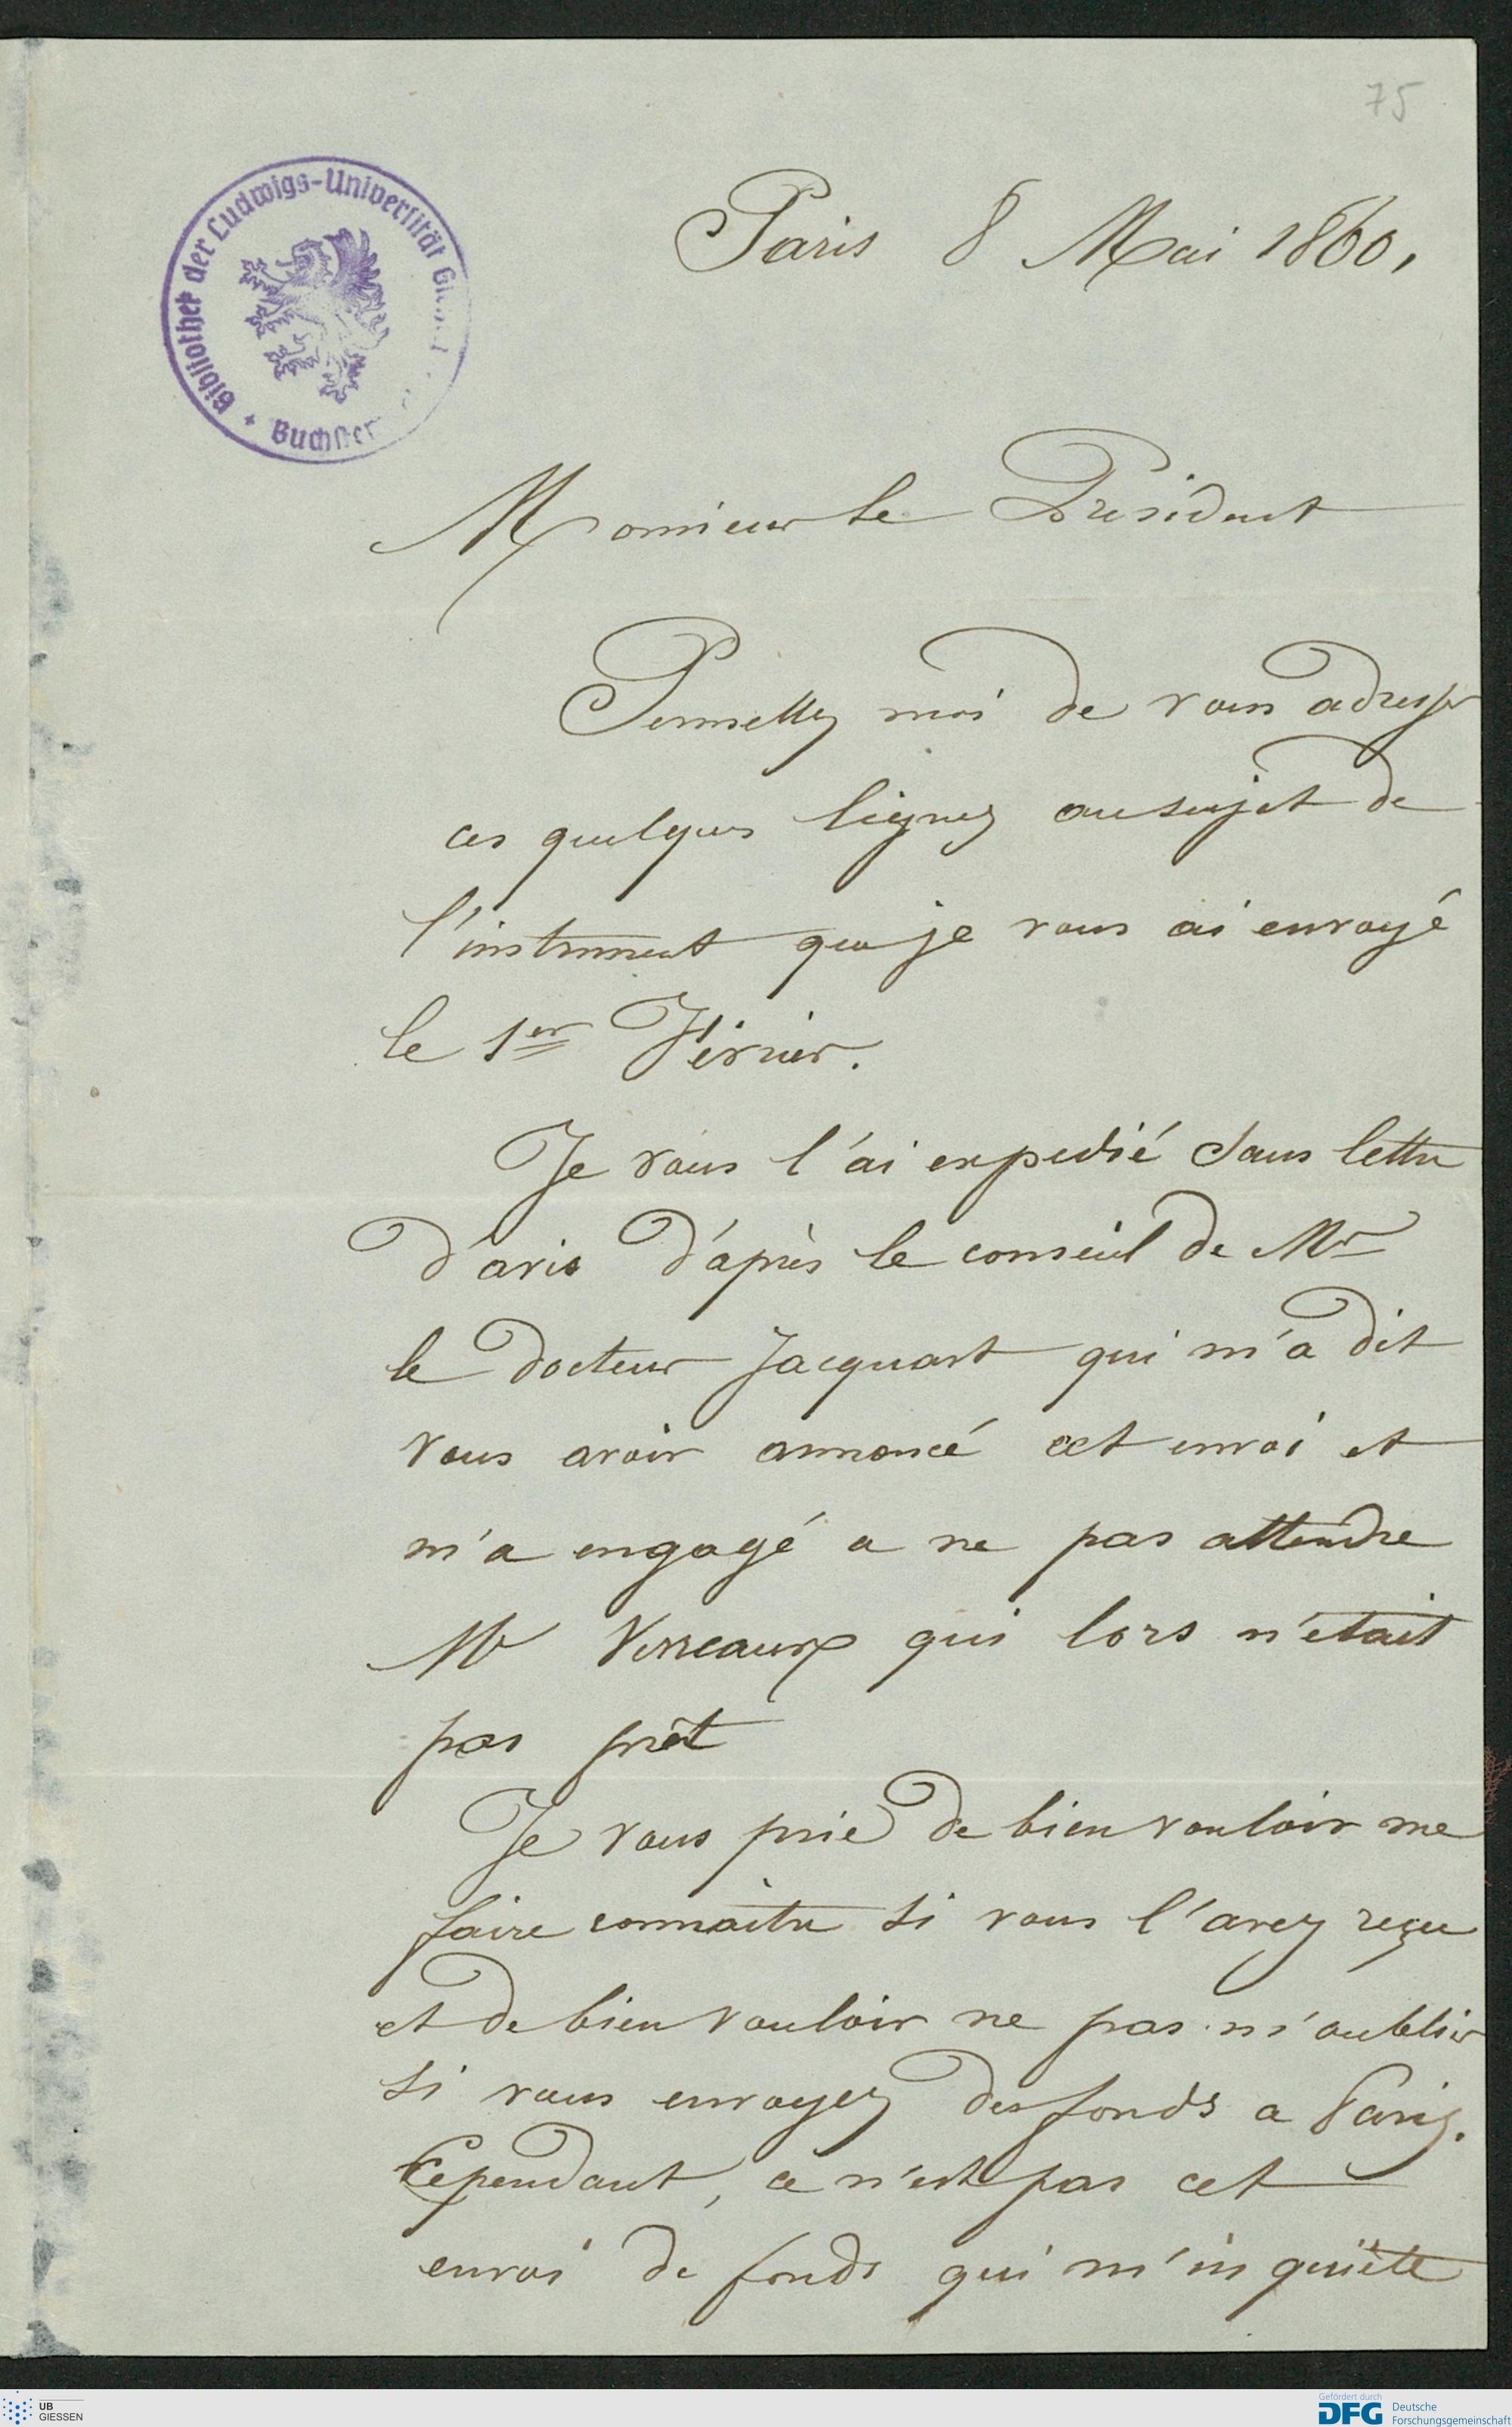 75
Bibliothek der Ludwigs-Universität
Paris 8 Mai 1860,
Monsieur le Président
Permettez moi de vous adresser
ces quelques lignes au sujet de
l'instrument que je vous ai envoyé
le 1er Février.
Je vous l'ai expedié sans lettre
d'avis d'après le conseil de Mr
le docteur Jacquart qui m'a dit
vous avoir annoncé cet envoi et
m'a engagé a ne pas attendre
Mr Verreaux qui lors n'était
pas prêt
Je vous prie de bien vouloir me
faire connaitre si vous l'avez reçu
et de bien vouloir ne pas m'oublier
si vous envoyez des fonds a Paris.
Cependant, ce n'est pas cet
envoi de fonds qui m'inquiète
UB
GIESSEN
Gefördert durch
DFG Deutsche
Forschungsgemeinschaft